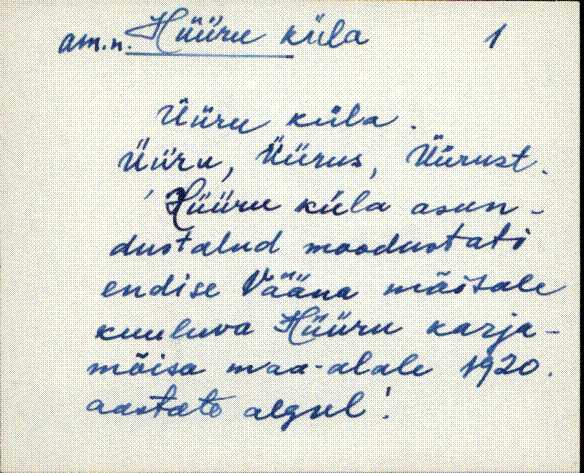 am.n. Hüüru küla 1
Üüru küla.
Üüru, Üürus, Üürust.
Hüüru küla asun-
dustalud moodustati
endise Vääna mõisale
kuuluva Hüüru karja-
mõisa maa-alale 1920.
aastate algul.